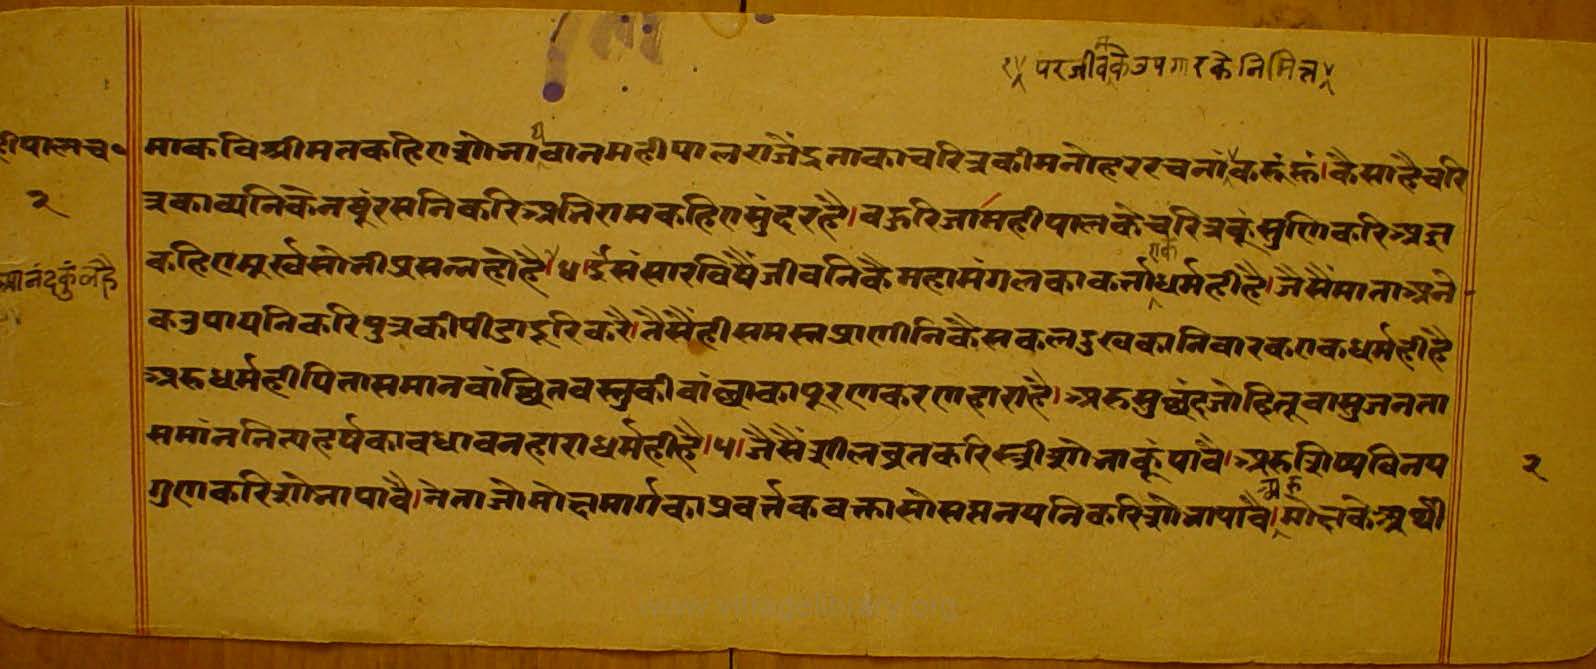 १ परजीवकेउपगारकेनिमित्त
हीपालच॰
२
आनंदकुंजहै
माकविश्रीमतकहिएशोभावानमहीपालराजेंद्रताकाचरित्रकीमनोहररचनांकरूंहूं।कैसाहैचरि
त्रकाव्यनिकेनवूंरसनिकरिअभिरामकहिएसुंदरहै।बहुरिजामहीपालकेचरित्रकूंसुणिकरिअज्ञ
कहिएमूर्खसोभीप्रसन्नहोहै।४।ईसंसारविषैंजीवनिकैमहामंगलकाकर्त्ताएकधर्महीहै।जैसैंमाताअने
कउपायनिकरिपुत्रकीपीडादूरिकरै।तैसैंहीसमस्तप्राणीनिकैसकलदुखकानिवारकएकधर्महीहै
अरुधर्महीपितासमानवांछितवस्तुकीवांछाकापूरणकरणहाराहै।अरुसुछंदजोहितूवासुजनता
समांननित्यहर्षकावधावनहाराधर्महीहै।५।जैसैंशीलव्रतकरिस्त्रीशोभाकूंपावै।अरुशिष्यविनय
गुणकरिशोभापावै।नेताजोमोक्षमार्गकाप्रवर्त्तकवक्तासोसप्तनयनिकरिशोभापावै।अरुमोक्षकेअर्थी
२
www.vitragelibrary.org